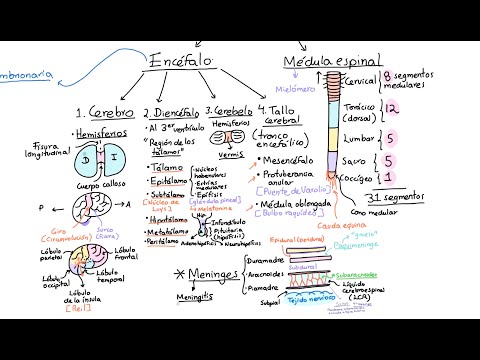 mbrionaria
Encéfalo
Médula espinal
1. Cerebro
• Hemisferios
Fisura longitudinal
D
I
Cuerpo calloso
P
A
Giro (Circunvolución)
Surco (Rama)
Lóbulo parietal
Lóbulo frontal
Lóbulo occipital
Lóbulo temporal
Lóbulo de la ínsula [Reil]
2. Diencéfalo
• Al 3er ventrículo
"Región de los tálamos"
• Tálamo
• Epitálamo
• Subtálamo
[Núcleo de Luys]
• Hipotálamo
• Metatálamo
• Peritálamo
• Núcleos habenulares
• Estrías medulares
• Epífisis
[glándula pineal]
melatonina
Hip
Infundíbulo
Pituitaria (hipófisis)
Adenohipófisis
Neurohipófisis
3. Cerebelo
Hemisferios
Vermis
4. Tallo cerebral
(tronco encefálico)
• Mesencéfalo
• Protuberancia anular
[Puente de Varolio]
• Médula oblongada
[Bulbo raquídeo]
Mielómero
Cervical 8 segmentos medulares
Torácico (dorsal) 12
Lumbar 5
Sacro 5
Coccígeo 1
31 segmentos
Cono medular
Cauda equina
* Meninges
Meningitis
Epidural (peridural)
Duramadre
Subdural
Aracnoides
Subaracnoideo
Piamadre
Líquido cerebroespinal (LCR)
Subpial
Tejido nervioso